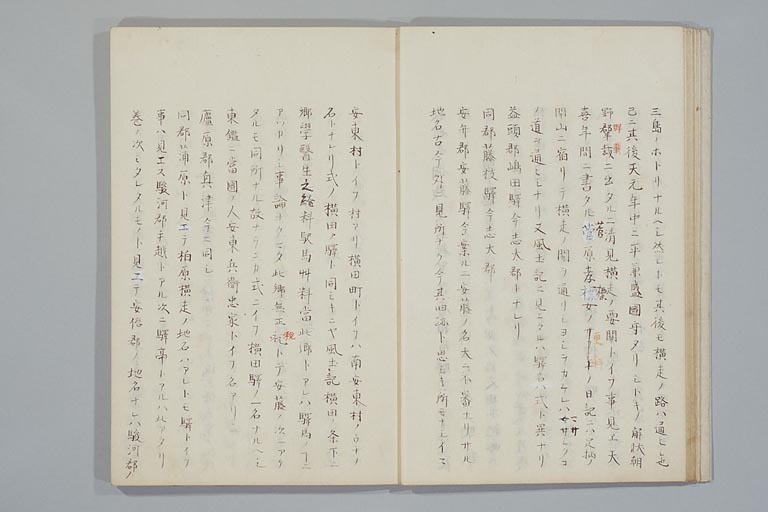 三島ノホトリナルヘシ然レトモ其後モ横走ノ路ハ通シ
已ニ其後天元年中ニ平兼盛國守タリシトキノ解状朝
野羣載ニ出タルニ清見横走ノ要関トイフ事見エ天
喜年間ニ書タル菅原孝標女ノサラシナノ日記ニハ足柄ノ
関山ニ宿リテ横走ノ関ヲ通リシヨシヲカケレハ
道ヲ通ヒシナリ又風土記ニ見エタルハ驛名ハ式ト異ナリ
益頭郡嶋田驛今志太郡トナレリ
同郡藤枝驛今志太郡
安弁郡安藤驛今案ルニ安藤ノ名大ニ不審ナリサル
地名古今外ニ見所ナク今其旧跡ト思シキ所モナシ
安東村トイフ村アリ横田町トイフハ南安東村ノ
名トナレリ式ノ横田ノ驛ト同シキニヤ風土記横田ノ条下ニ
郷學醫生之給料駅馬艸料當此郷トアレハ驛馬ノ
アツカリシ事論ナクマタ此郷無正税トテ安藤ノ次ニアケ
タルモ同所ナル故ナランカ式ニイフ横田驛ノ一名ナルヘシ
東鑑ニ當國ノ人安東兵衛忠家トイフ名アリ
廬原郡興津今ニ同シ
同郡蒲原ト見エテ柏原横走ノ地名ハアレトモ驛トイフ
事ハ見エス駿河郡手越トアル次ニ驛亭トアルハ此アタリ
巻ノ次ミタレタルモノト見エテ安倍郡ノ地名ナレハ駿河郡ノ